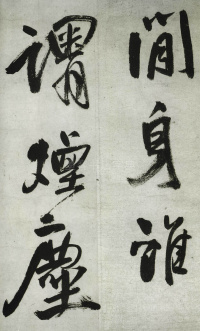 閒身誰
謂煙塵